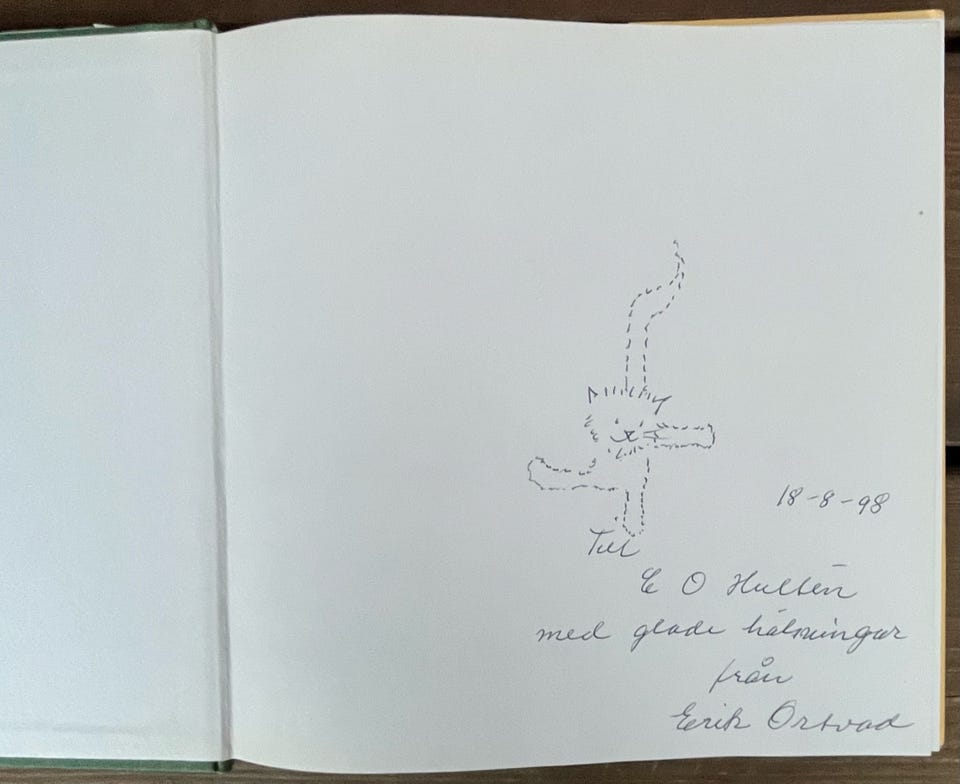 18-8-98
Till
E O Hultén
med glade hälsningar
från
Erik Ortvad